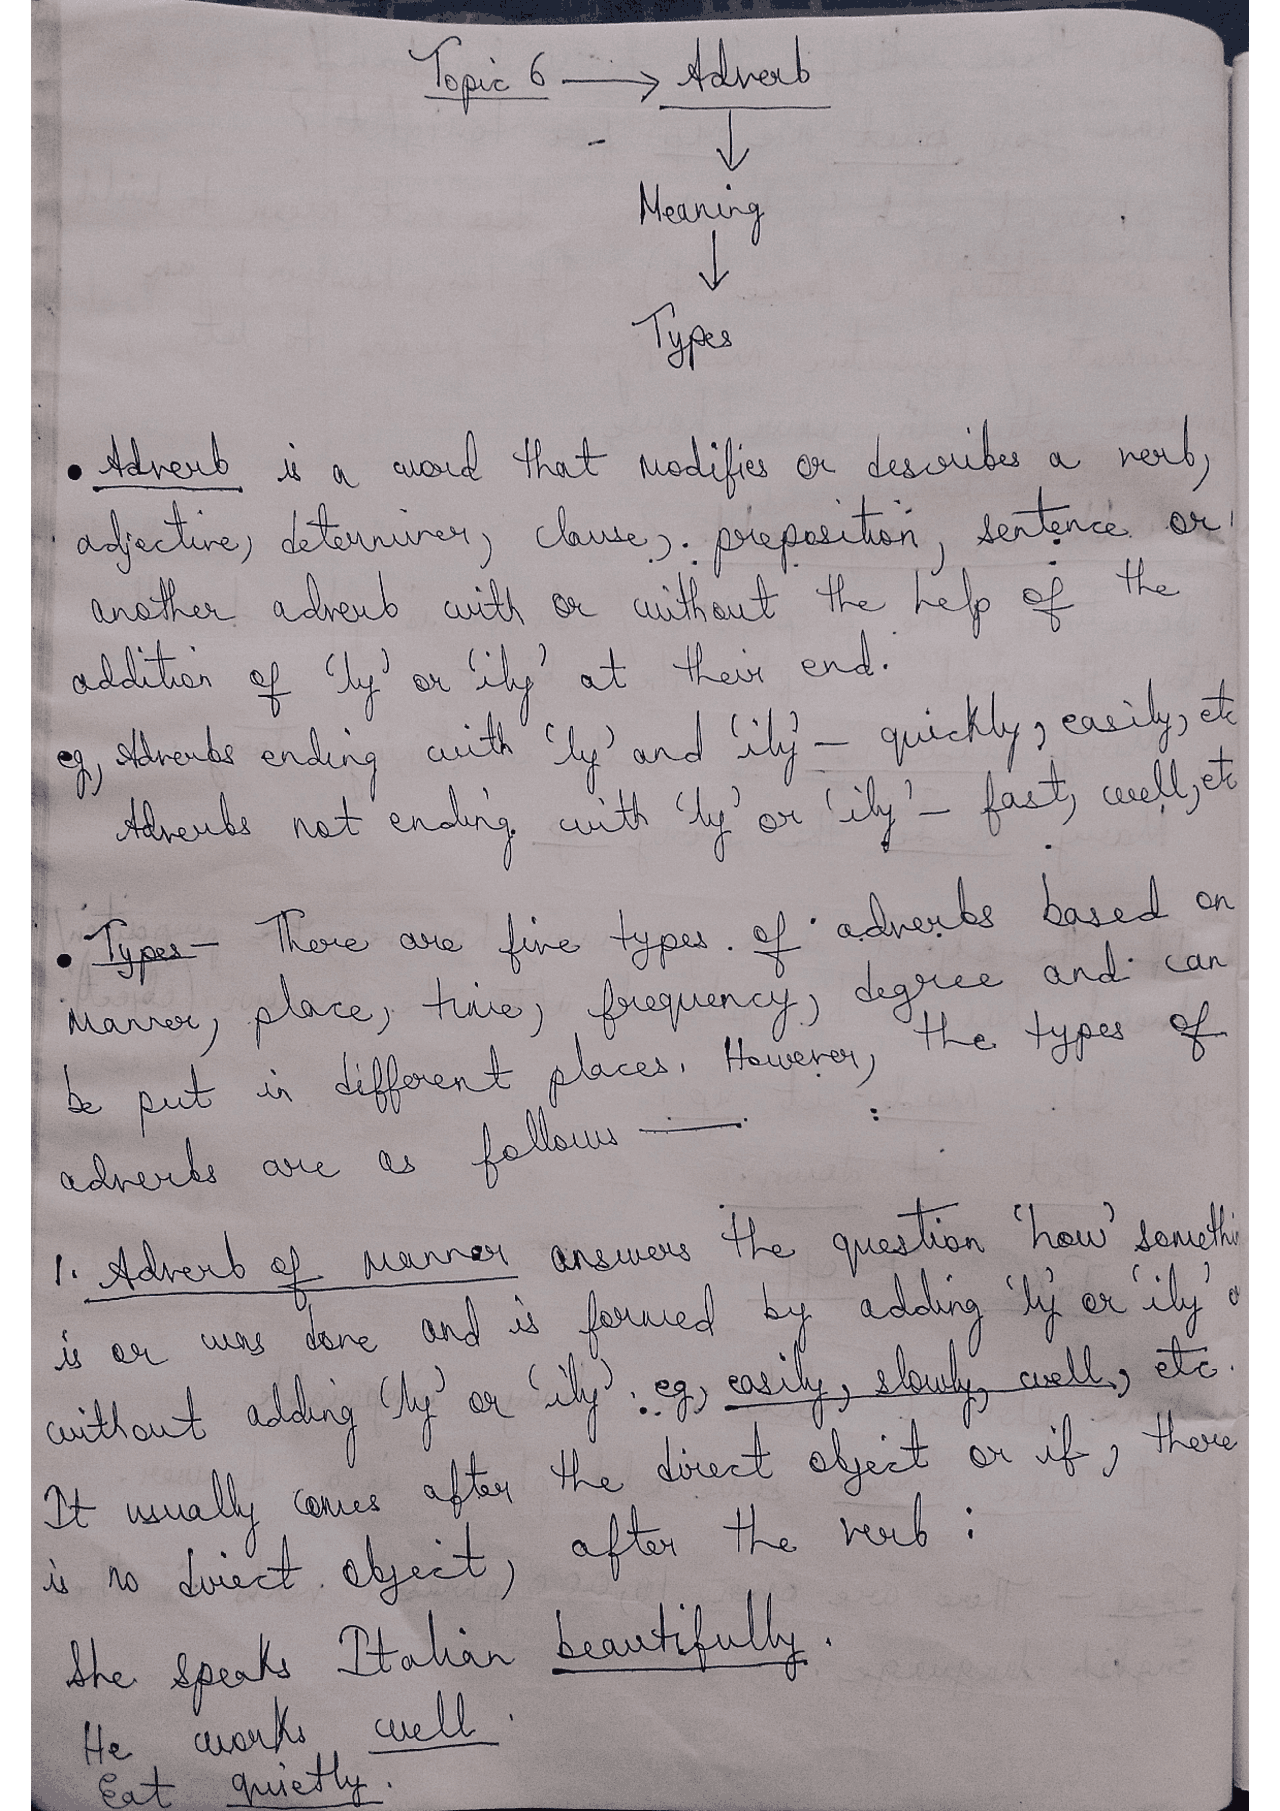 Topic 6 → Adverb
↓
Meaning
↓
Types
• Adverb is a word that modifies or describes a verb,
adjective, determiner, clause, preposition, sentence or
another adverb with or without the help of the
addition of 'ly' or 'ily' at their end.
eg, Adverbs ending with 'ly' and 'ily' – quickly, easily, etc
Adverbs not ending with 'ly' or 'ily' – fast, well, etc
• Types – There are five types of adverbs based on
manner, place, time, frequency, degree and can
be put in different places. However, the types of
adverbs are as follows —
1. Adverb of manner answers the question 'how' somethi
is or was done and is formed by adding 'ly' or 'ily' o
without adding 'ly' or 'ily'. eg, easily, slowly, well, etc.
It usually comes after the direct object or if, there
is no direct object, after the verb :
She speaks Italian beautifully.
He works well.
Eat quietly.